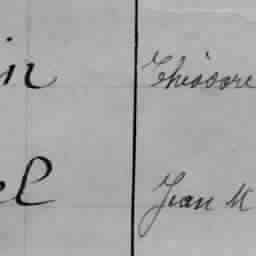 in Théodore
el Jean M